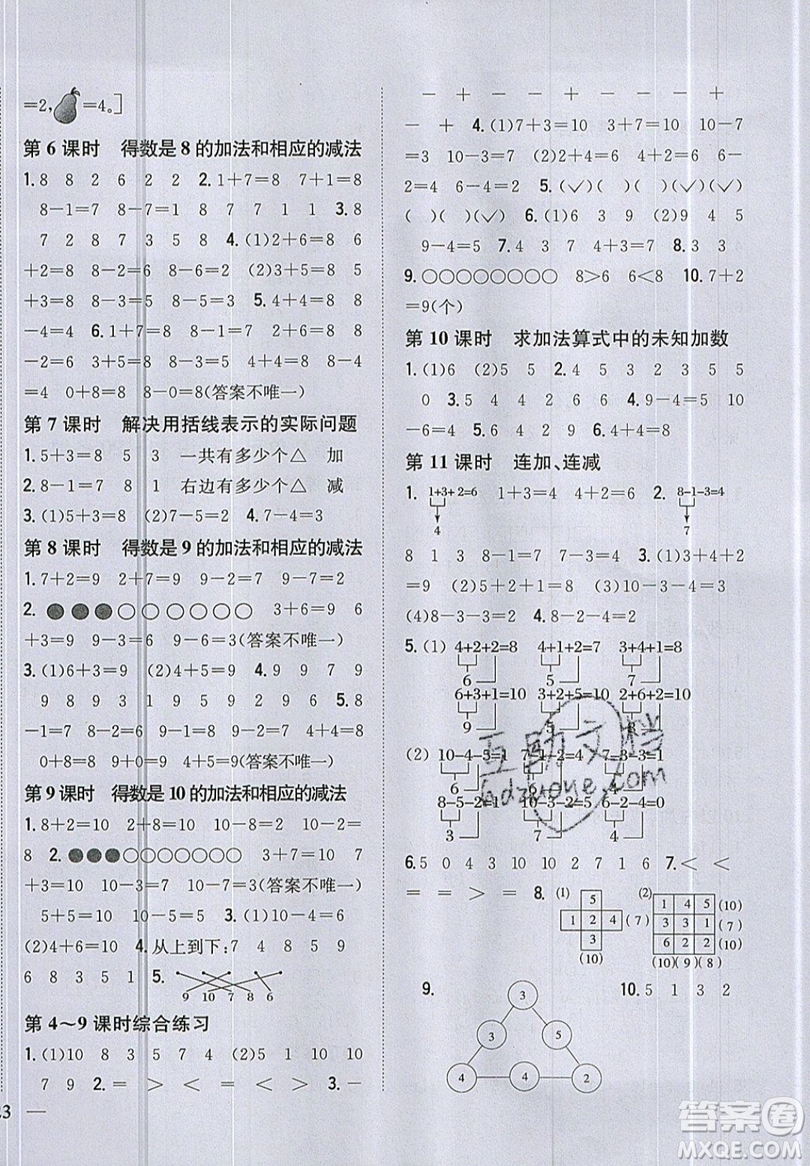 =2,=4。]
第 6 课时　得数是 8 的加法和相应的减法
1. 8　8　2　6　2　2　2. 1+7=8　7+1=8
8-1=7　8-7=1　8　7　1　1　3. 8
7　2　8　7　8　5　4. (1)2+6=8　6
+2=8　8-2=6　8-6=2　(2)3+5=8
5+3=8　8-3=5　8-5=3　5. 4+4=8　8
-4=4　6. 1+7=8　7+1=8　8-1=7　8-7
=1　2+6=8　6+2=8　8-2=6　8-6=2　3
+5=8　5+3=8　8-3=5　8-5=3　4+4=8　8-4
=4　0+8=8　8-0=8(答案不唯一)
第 7 课时　解决用括线表示的实际问题
1. 5+3=8　5　3　一共有多少个△　加
2. 8-1=7　8　1　右边有多少个△　减
3. (1)5+3=8　(2)7-5=2　4. 7-4=3
第 8 课时　得数是 9 的加法和相应的减法
1. 7+2=9　2+7=9　9-2=7　9-7=2
2. ●●●○○○○○○　3+6=9　6
+3=9　9-3=6　9-6=3(答案不唯一)
3. (1)3+6=9　(2)4+5=9　4. 9　7　9　9
9　1　9　4　5　9　5. 9　2　9　9　6. 8
-1=7　8-2=6　9-5=4　4+4=8
0+8=8　4+5=9(答案不唯一)
第 9 课时　得数是 10 的加法和相应的减法
1. 8+2=10　2+8=10　10-2=8　10-8=2
8　2. ●●●○○○○○○○　3+7=10　7
+3=10　10-3=7　10-7=3(答案不唯一)
5+5=10　10-5=5　3. (1)2+8=10
(2)4+6=10　4. 从上到下:7　4　8　5　9
6　8　3　5　1　5.
9　10　7　8　6
第 4～9 课时综合练习
1. (1)10　8　3　5　7　4　(2)5　1　10　10
7　9　2. =　>　<　=　<　=　>　3. -
23
-　+　-　-　+　-　+　-　+
-　+　4. (1)7+3=10　3+7=10　10-7
=3　10-3=7　(2)2+4=6　4+2=6　6-2=4　6
-4=2　6+2=8　5. (✓)(　)(✓)(✓)
(　)(　)(✓)　6. (1)6　3　9　(2)9　4　5
9-4=5　7. 4+3=7　8. 3
9. ○○○○○○○○　8>6　6<8　10. 7+2
=9(个)
第 10 课时　求加法算式中的未知加数
1. (1)6　(2)5　2. 5　4　3. 2　7　6　5
0　4. >　<　=　>　5. 5　7　4　2　6. 10
-6=4　7. (1)3　1　(2)6　4
第 11 课时　连加、连减
1. 1+3+2=6　1+3+4=8　2. 8-1-3=4
4　7
8　1　3　8-1-7=0　7-3=4　3. (1)3+4+2
=9　(2)1+2+5=8　(3)9-4-3=2
(4)8-3-3=2　4. 8-4-2=2
5. (1)　4+2+2=8　4+1+2=7　3+4+1=8
6　5　7
6+3+1=10　3+2+5=10　2+6+2=10
9　5　8
(2)　10-4-3=3
8-5-2=1　10-3-2=5　8-4-4=0
3　7　4
6. 5　0　4　3　10　10　2　7　1　6　7. <　<
<　=　=　>　=　>　8. (1)　(2)
5
1　2　4　(7)
3
(10)
1　4　5　(10)
(7)
(10)
(10)(9)(8)
9.　10. 5　1　3　2
3
3　5
4　4　2
互助文档
hdzuoye.com
答案圈
MXQE.COM